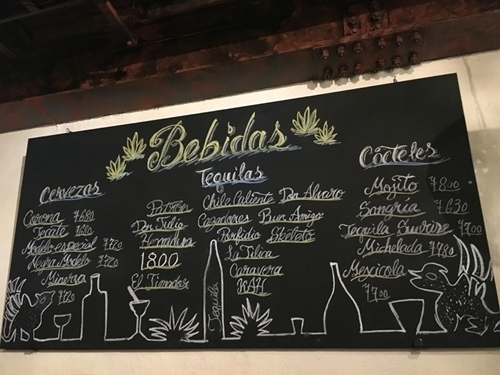 Bebidas
Cervezas
Corona ₹680
Tecate
Modelo especial ₹720
Negra Modelo ₹720
Minerva
₹720
Tequilas
Patrón
Don Julio
Herradura
1800
El Tirador
Chile Caliente
Cazadores
Perfidio
La Pilica
Caravera
KAH
Don Alvaro
Buen Amigo
Sboteto
Tequila
Cócteles
Mojito ₹800
Sangría ₹650
Tequila Sunrise ₹700
Michelada ₹780
Mexicola
₹700